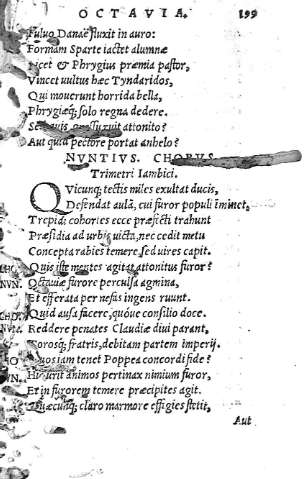 OCTAVIA. 199
Fuluo Danaë fluxit in auro:
Formam Sparte iactet alumnæ
Licet & Phrygius præmia pastor,
Vincet uultus hæc Tyndaridos,
Qui mouerunt horrida bella,
Phrygiæq; solo regna dedere.
Sed quis ationito?
Aut quid pectore portat anhelo?
NVNTIVS. CHORVS.
Trimetri Iambici.
Quicunq; tectis miles exultat ducis,
Defendat aulā, cui furor populi īminet,
Trepidi cohortes ecce præfecti trahunt
Præsidia ad urbis, uicta nec cedit metu
Concepta rabies temere, sed uires capit.
CHO. Quis iste mentes agitat ationitus furor?
NVN. Octauiæ furore perculsa agmina,
Et efferata per nefas ingens ruunt.
CHO. Quid ausa facere, quóue consilio doce.
NVN. Reddere penates Claudiæ diui parant,
Torosq; fratris, debitam partem imperij.
CHO Quos iam tenet Poppea concordi fide?
NVN. Hic urit animos pertinax nimium furor,
Et in furorem temere præcipites agit.
Quæcunq; claro marmore effigies stetit,
Aut